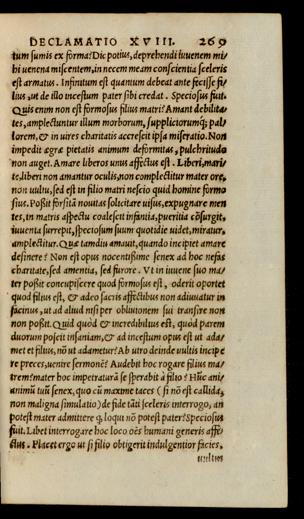 DECLAMATIO XVIII. 269
tum sumis ex forma? Dic potius, deprehendi iuuenem mi/
hi uenena miscentem, in necem meam conscientia sceleris
est armatus. Infinitum est quantum debeat ante fecisse fi/
lius, ut de illo incestum pater sibi credat. Speciosus fuit.
Quis enim non est formosus filius matri? Amant debilita/
tes, amplectuntur illum morborum, suppliciorumq; pal/
lorem, & in uires charitatis accrescit ipsa miseratio. Non
impedit ægræ pietatis animum deformitas, pulchritudo
non auget. Amare liberos unus affectus est. Liberi, mari/
te, liberi non amantur oculis, non complectitur mater ore,
non uultu, sed est in filio matri nescio quid homine formo
sius. Possit forsitā nouitas solicitare uisus, expugnare men
tes, in matris aspectu coalescit infantia, pueritia cōsurgit,
iuuenta surrepit, speciosum suum quotidie uidet, miratur,
amplectitur. Quæ tamdiu amauit, quando incipiet amare
desinere? Non est opus nocentissime senex ad hoc nefas
charitate, sed amentia, sed furore. Vt in iuuene suo ma/
ter possit concupiscere quod formosus est, oderit oportet
quod filius est, & adeo sacris affectibus non adiuuatur in
facinus, ut ad aliud nisi per obliuionem sui transire non
non possit. Quid quòd & incredibilius est, quòd parem
duorum poscit insaniam, & ad incestum opus est ut ada/
met et filius, nō ut adametur? Ab utro deinde uultis incipe
re preces, uenire sermonē? Audebit hoc rogare filius ma/
trem? mater hoc impetraturā se sperabit à filio? Hūc ani/
animū tuū senex, quo cū maxime taces (si nō est callida,
non maligna simulatio) de fide tāti sceleris interrogo, an
potest mater admittere q̄ loqui nō potest pater? Speciosus
fuit. Libet interrogare hoc loco oēs humani generis affe/
ctus. Placet ergo ut si filio obtigerit indulgentior facies,